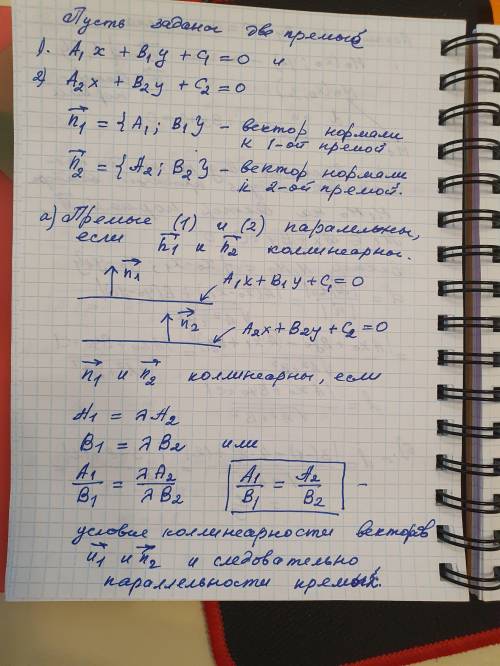 Пусть заданы две премые
1). A₁x + B₁y + C₁ = 0 и
2) A₂x + B₂y + C₂ = 0
n₁ = {A₁; B₁} – вектор нормали
к 1-ой премой
n₂ = {A₂; B₂} – вектор нормали
к 2-ой премой.
а) Премые (1) и (2) паралельны,
если n₁ и n₂ коллинеарны.
n₁
A₁x + B₁y + C₁ = 0
n₂
A₂x + B₂y + C₂ = 0
n₁ и n₂ коллинеарны, если
A₁ = λA₂
B₁ = λB₂ или
A₁/B₁ = λA₂/λB₂ A₁/B₁ = A₂/B₂ –
условие коллинеарности векторов
n₁ и n₂ и следовательно
параллельности премых.